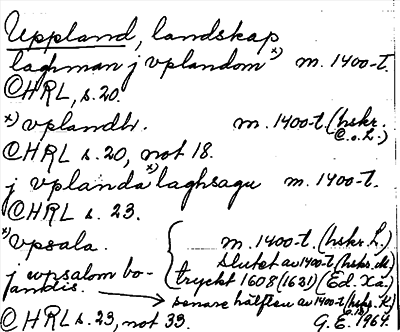 Uppland, landskap
laghman j vplandom x) m. 1400-t.
CHRL, s. 20.
x) vplandh. m. 1400-t. (hskr. C. o. L.)
CHRL s. 20, not 18.
j vplanda x) laghsagu m. 1400-t.
CHRL s. 23.
x) vpsala. m. 1400-t. (hskr. L.)
slutet av 1400-t. (hskr. M.)
j wpsalom bo- tryckt 1608 (1631) (Ed. Xa.)
andis. senare hälften av 1400-t (hskr. K)
CHRL s. 23, not 33. G. E. 1964.